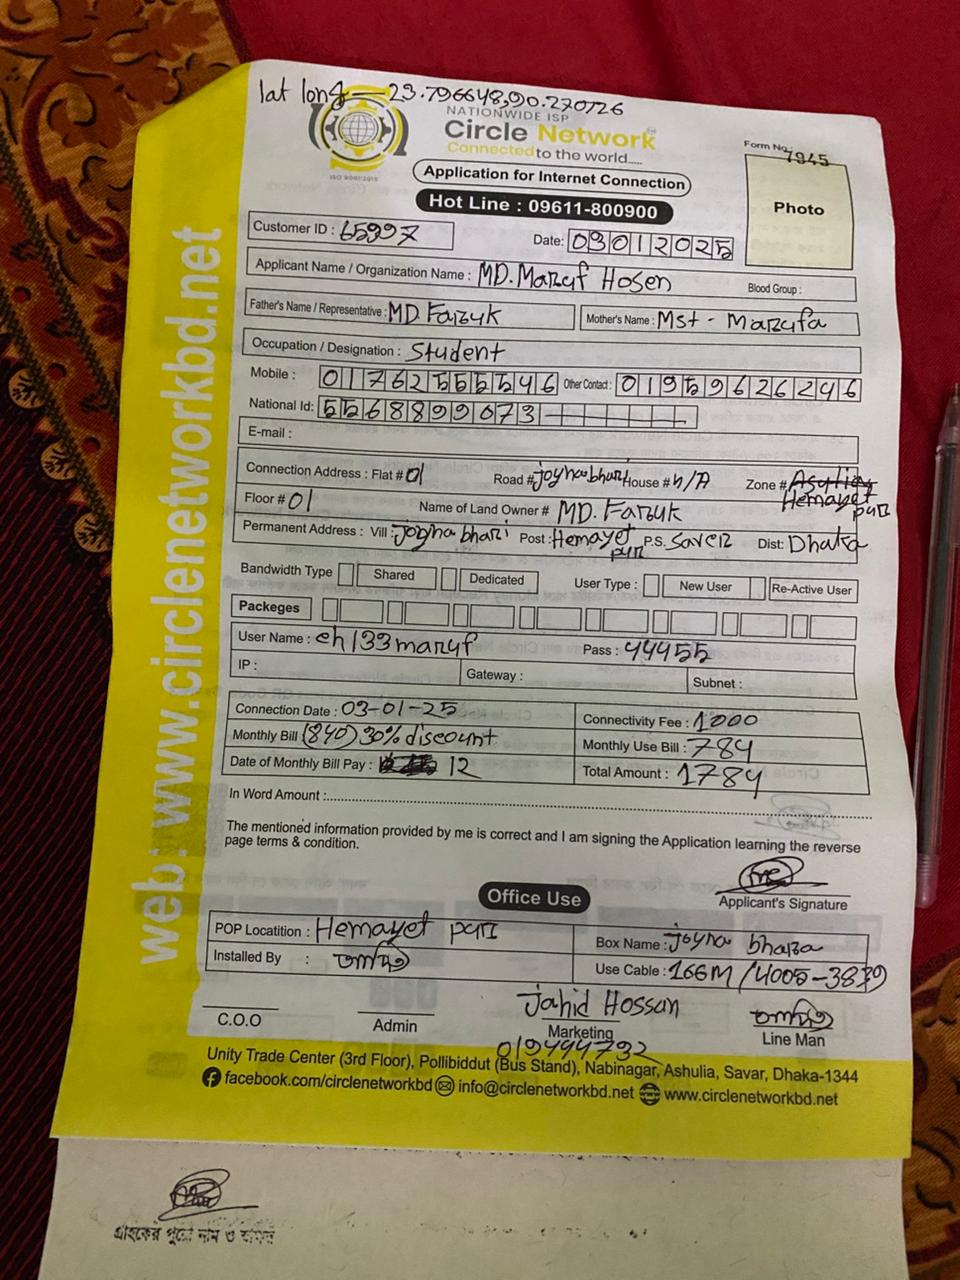 lat long - 23.796648,90.270726
NATIONWIDE ISP
Circle Network
Connected to the world.....
ISO 9001:2015
Application for Internet Connection
Hot Line : 09611-800900
Form No. 7945
Photo
web: www.circlenetworkbd.net
Customer ID : 65997
Date: 03012025
Applicant Name / Organization Name : MD. Maruf Hosen
Blood Group :
Father's Name / Representative : MD Faruk
Mother's Name : Mst - Marufa
Occupation / Designation : Student
Mobile : 01762555546 Other Contact : 01959626246
National Id: 5568899073
E-mail :
Connection Address : Flat # 01 Road # joynabhari House # N/A Zone # Hemayet pur
Floor # 01 Name of Land Owner # MD. Faruk
Permanent Address : Vill: Joyna bhari Post: Hemayet pur P.S. Saver Dist: Dhaka
Bandwidth Type Shared Dedicated User Type : New User Re-Active User
Packeges
User Name : eh133maruf Pass : 44455
IP : Gateway : Subnet :
Connection Date : 03-01-25 Connectivity Fee : 1000
Monthly Bill (840) 30% discount Monthly Use Bill : 784
Date of Monthly Bill Pay : 12 Total Amount : 1784
In Word Amount :
The mentioned information provided by me is correct and I am signing the Application learning the reverse
page terms & condition.
Applicant's Signature
Office Use
POP Locatition : Hemayet pur Box Name : Joyna bhara
Installed By : Use Cable : 166M / 4005-3839
Jahid Hossan
C.O.O Admin Marketing Line Man
019494792
Unity Trade Center (3rd Floor), Pollibiddut (Bus Stand), Nabinagar, Ashulia, Savar, Dhaka-1344
facebook.com/circlenetworkbd info@circlenetworkbd.net www.circlenetworkbd.net
গ্রাহকের পুরো নাম ও